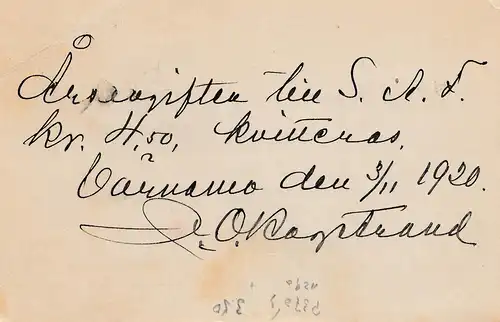 Årsavgiften till S. A. F.
kr. 4,50, kvitteras.
Värnamo den 3/11 1920.
O.